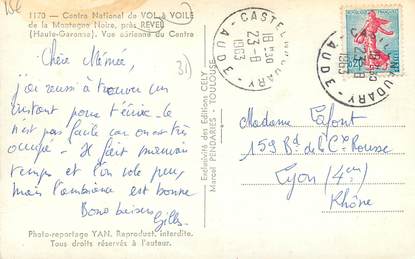 15€
1170 — Centre National de VOL à VOILE
de la Montagne Noire, près REVEL
(Haute-Garonne). Vue aérienne du Centre
31)
Chère Mémée,
j'ai réussi à trouver un
instant pour t'écrire - ce
n'est pas facile car on est très
occupé - Il fait mauvais
temps et l'on vole peu,
mais l'ambiance est bonne
Bons baisers
Gilles
Photo-reportage YAN. Reproduct. interdite.
Tous droits réservés à l'auteur.
Exclusivité des Editions CELY
Marcel PENDARIES - TOULOUSE
CASTELNAUDARY
18H30
23-8
1963
AUDE
0,20
Madame Lafont
159 Bd de la Cx Rousse
Lyon (4em)
Rhône